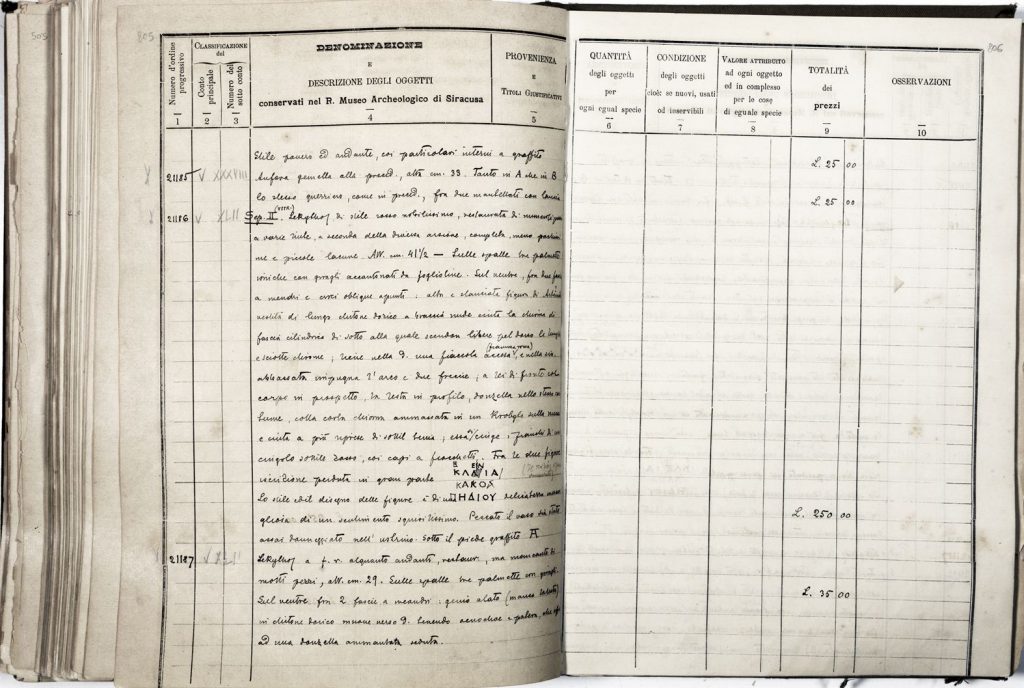 505
805
Numero d'ordine progressivo
1
CLASSIFICAZIONE del
Conto principale
2
Numero del sotto conto
3
DENOMINAZIONE
E
DESCRIZIONE DEGLI OGGETTI
conservati nel R. Museo Archeologico di Siracusa
4
PROVENIENZA
E
TITOLI GIUSTIFICATIVI
5
Stile povero ed andante, coi particolari interni a graffito
21185 V XXXVIII Anfora gemella alla preced., alta cm. 33. Tanto in A che in B
lo stesso guerriero, come in preced., fra due mantellati con lancia
21186 V XLII Sep. II. Lekythos di stile rosso nobilissimo, restaurata di numerosi
a varie tinte, a seconda della diversa arsione, completa, meno
me e piccole lacune. Alt. cm. 41 1/2 — Sulle spalle tre palmette
ioniche con giragli accantonati da foglioline. Sul ventre, fra due fascie
a meandri e croci oblique apunti: alta e slanciata figura di
vestita di lungo chitone dorico a braccia nude cinta la chioma di
fascia cilindrica di sotto alla quale scendon libere pel dorso le lunghe
e sciolte chiome; tiene nella d. una fiaccola accesa, e nella sin.
abbassata impugna l'arco e due freccie; a lei di fronte col
corpo in prospetto, la testa in profilo, donzella nello stesso
tume, colla corta chioma ammassata in un Krobylos sulla nuca
e cinta a più riprese di sottil benda; essa cinge i fianchi di un
cingolo sottile rosso, coi capi a fiocchetti. Fra le due figure
iscrizione perduta in gran parte
ΚΛΔΙΑ
ΚΑΛΟΣ
ΗΔΙΟΥ
Lo stile ed il disegno delle figure è di una delicatezza
gliosa di un sentimento squisitissimo. Peccato il vaso sia stato
assai danneggiato nell'ustrino. Sotto il piede graffito A
21187 V XLII Lekythos a f. r. alquanto andanti, restaur., ma mancante di
molti pezzi, alt. cm. 29. Sulle spalle tre palmette con
Sul ventre fra 2 fascie a meandri: genio alato (manca
in chitone dorico muove verso d. tenendo oenochoe e patera, che
ad una donzella ammantata seduta.
806
QUANTITÀ
degli oggetti
per
ogni egual specie
6
CONDIZIONE
degli oggetti
cioè se nuovi, usati
od inservibili
7
VALORE ATTRIBUITO
ad ogni oggetto
ed in complesso
per le cose
di eguale specie
8
TOTALITÀ
dei
prezzi
9
OSSERVAZIONI
10
L. 25 00
L. 25 00
L. 250 00
L. 35 00